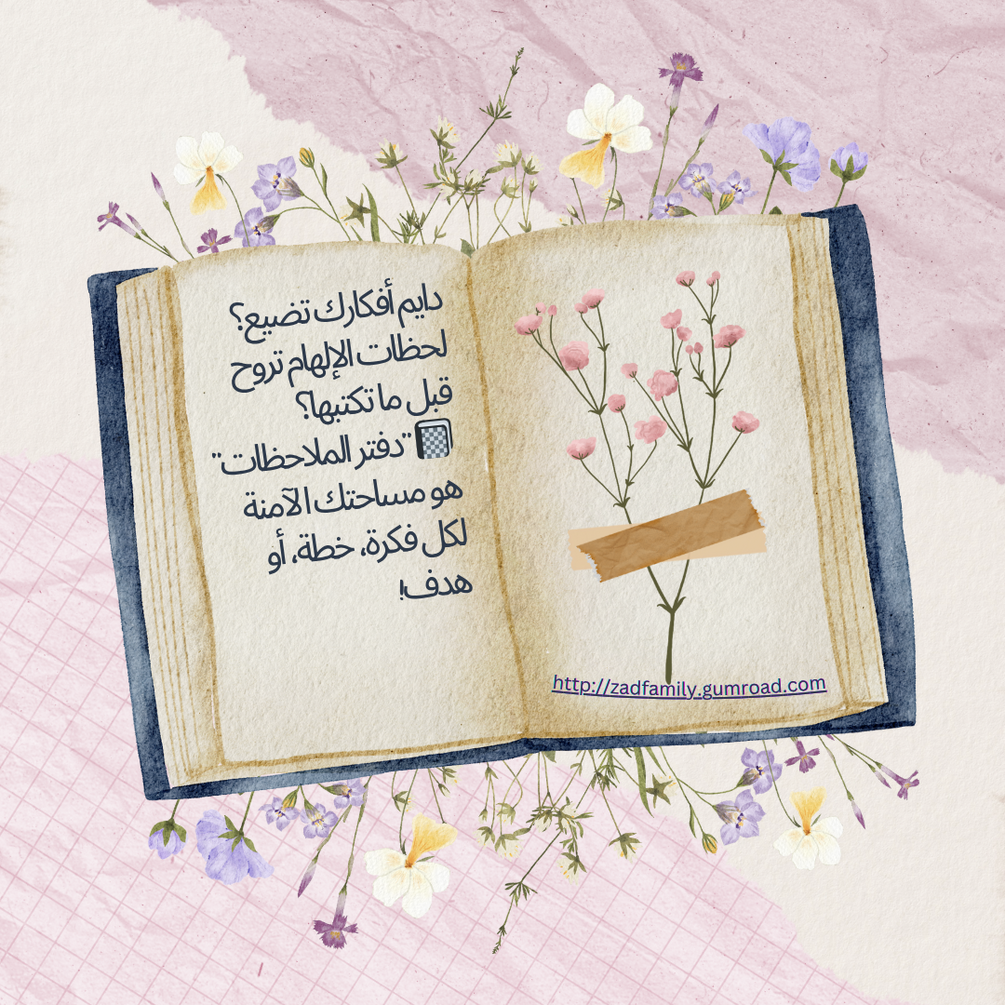 دايم أفكارك تضيع؟
لحظات الإلهام تروح
قبل ما تكتبها؟
📓 "دفتر الملاحظات"
هو مساحتك الآمنة
لكل فكرة، خطة، أو
هدف!
http://zadfamily.gumroad.com